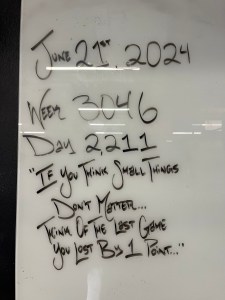 June 21st, 2024
Week 3046
Day 2,211
"If You Think Small Things
Don't Matter...
Think Of The Last Game
You Lost By 1 Point..."